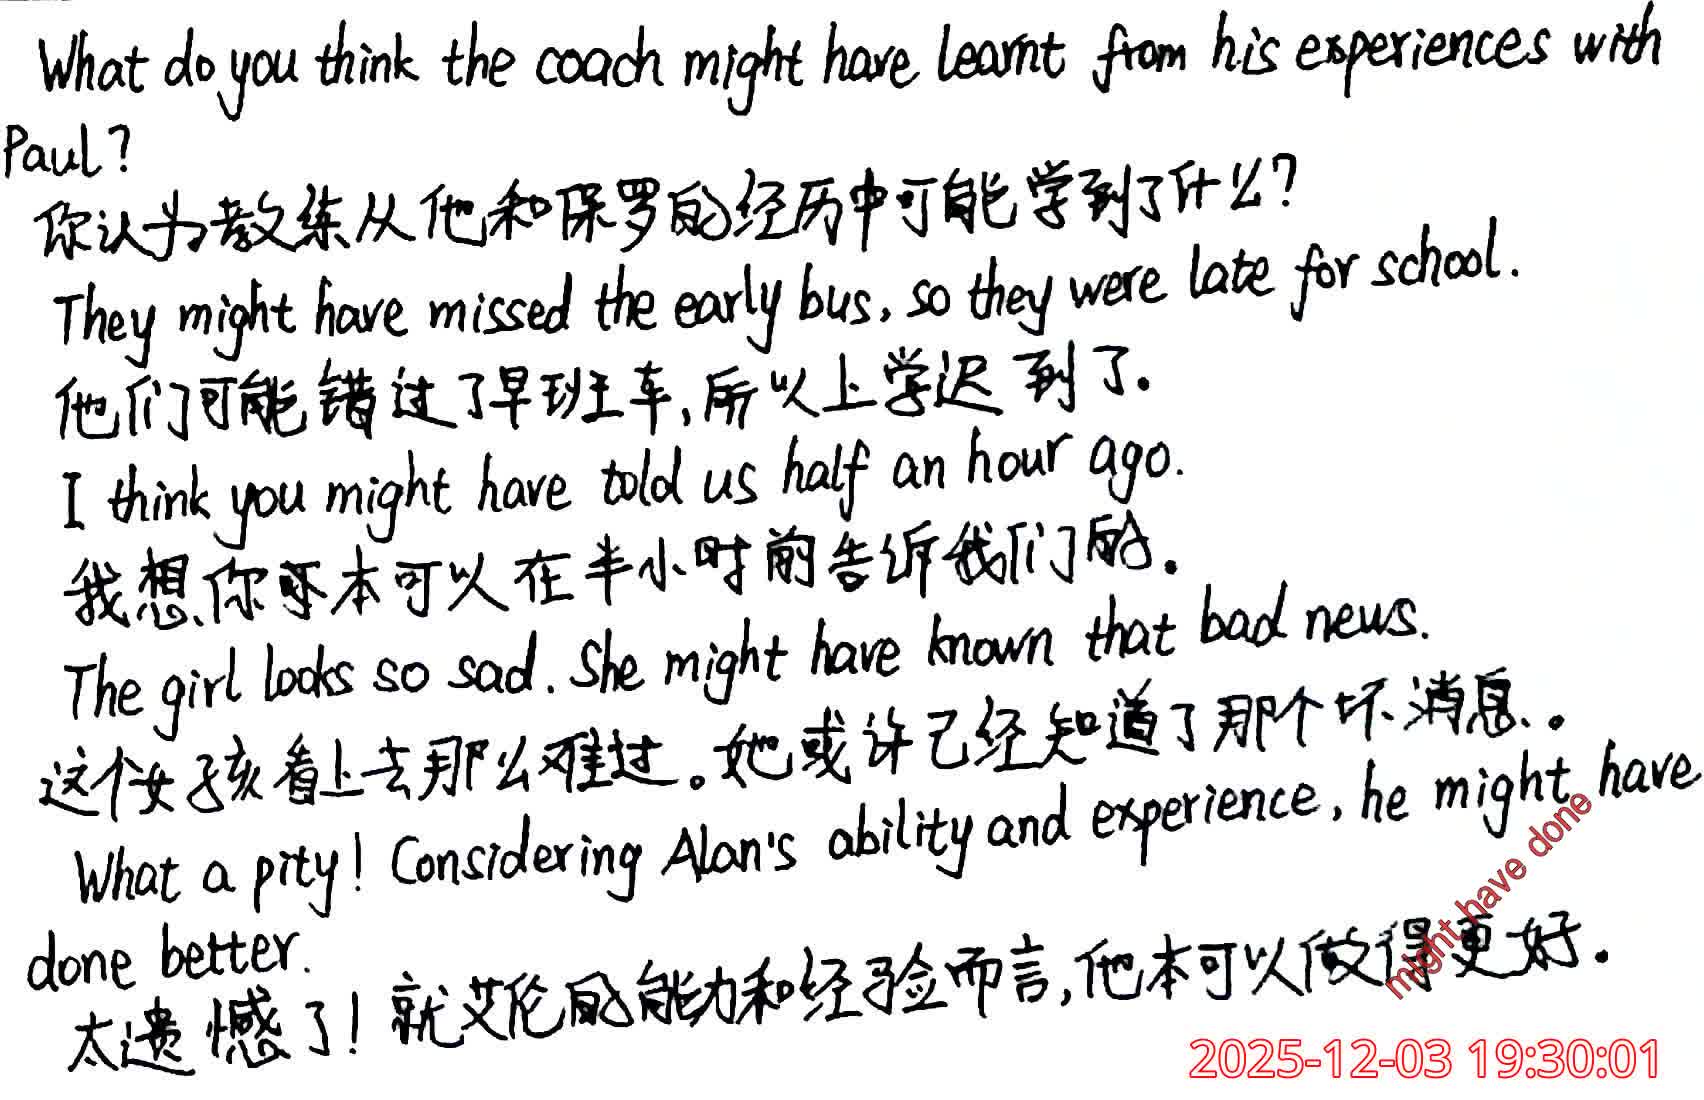 What do you think the coach might have learnt from his experiences with
Paul?
你认为教练从他和保罗的经历中可能学到了什么?
They might have missed the early bus, so they were late for school.
他们可能错过了早班车,所以上学迟到了.
I think you might have told us half an hour ago.
我想你本可以在半小时前告诉我们的.
The girl looks so sad. She might have known that bad news.
这个女孩看上去那么难过。她或许已经知道了那个坏消息.。
What a pity! Considering Alan's ability and experience, he might have
done better.
太遗憾了!就艾伦的能力和经验而言,他本可以做得更好.
might have done
2025-12-03 19:30:01